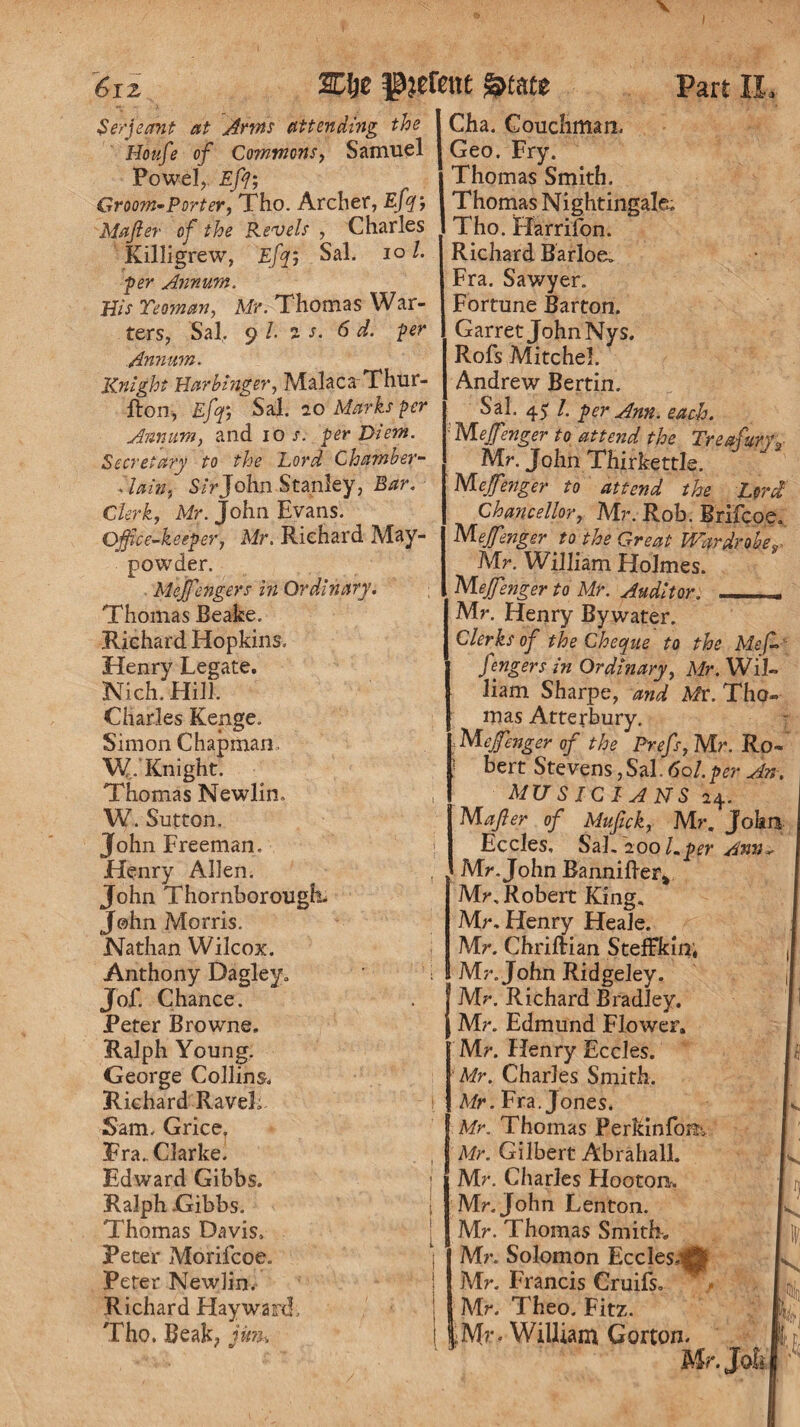 612 The Preſent State Part II.
Serjeant at Arms attending the
Houſe of Commons, Samuel
Powel, Eſq;
Groom-Porter, Tho. Archer, Eſq;
Maſter of the Revels, Charles
Killigrew, Eſq; Sal. 10 l.
per Annum.
His Yeoman, Mr. Thomas War-
ters, Sal. 9 l. 2 s. 6 d. per
Annum.
Knight Harbinger, Malaca Thur-
ſton, Eſq; Sal. 20 Marks per
Annum, and 10 s. per Diem.
Secretary to the Lord Chamber-
lain, Sir John Stanley, Bar.
Clerk, Mr. John Evans.
Office-keeper, Mr. Richard May-
powder.
Meſſengers in Ordinary.
Thomas Beake.
Richard Hopkins.
Henry Legate.
Nich. Hill.
Charles Kenge.
Simon Chapman.
W. Knight.
Thomas Newlin.
W. Sutton.
John Freeman.
Henry Allen.
John Thornborough.
John Morris.
Nathan Wilcox.
Anthony Dagley.
Joſ. Chance.
Peter Browne.
Ralph Young.
George Collins.
Richard Ravel.
Sam. Grice.
Fra. Clarke.
Edward Gibbs.
Ralph Gibbs.
Thomas Davis.
Peter Moriſcoe.
Peter Newlin.
Richard Hayward.
Tho. Beak, jun.
Cha. Couchman.
Geo. Fry.
Thomas Smith.
Thomas Nightingale.
Tho. Harriſon.
Richard Barloe.
Fra. Sawyer.
Fortune Barton.
Garret John Nys.
Roſs Mitchel.
Andrew Bertin.
Sal. 45 l. per Ann. each.
Meſſenger to attend the Treaſury,
Mr. John Thirkettle.
Meſſenger to attend the Lord
Chancellor, Mr. Rob. Briſcoe.
Meſſenger to the Great Wardrobe,
Mr. William Holmes.
Meſſenger to Mr. Auditor. ——
Mr. Henry Bywater.
Clerks of the Cheque to the Meſ-
ſengers in Ordinary, Mr. Wil-
liam Sharpe, and Mr. Tho-
mas Atterbury.
Meſſenger of the Preſs, Mr. Ro-
bert Stevens, Sal. 60 l. per An.
MUSICIANS 24.
Maſter of Muſick, Mr. John
Eccles, Sal. 200 l. per Ann.
Mr. John Banniſter,
Mr. Robert King.
Mr. Henry Heale.
Mr. Chriſtian Steffkin,
Mr. John Ridgeley.
Mr. Richard Bradley.
Mr. Edmund Flower.
Mr. Henry Eccles.
Mr. Charles Smith.
Mr. Fra. Jones.
Mr. Thomas Perkinſon.
Mr. Gilbert Abrahall.
Mr. Charles Hooton.
Mr. John Lenton.
Mr. Thomas Smith.
Mr. Solomon Eccles.
Mr. Francis Cruiſs.
Mr. Theo. Fitz.
Mr. William Gorton.
Mr. Joh